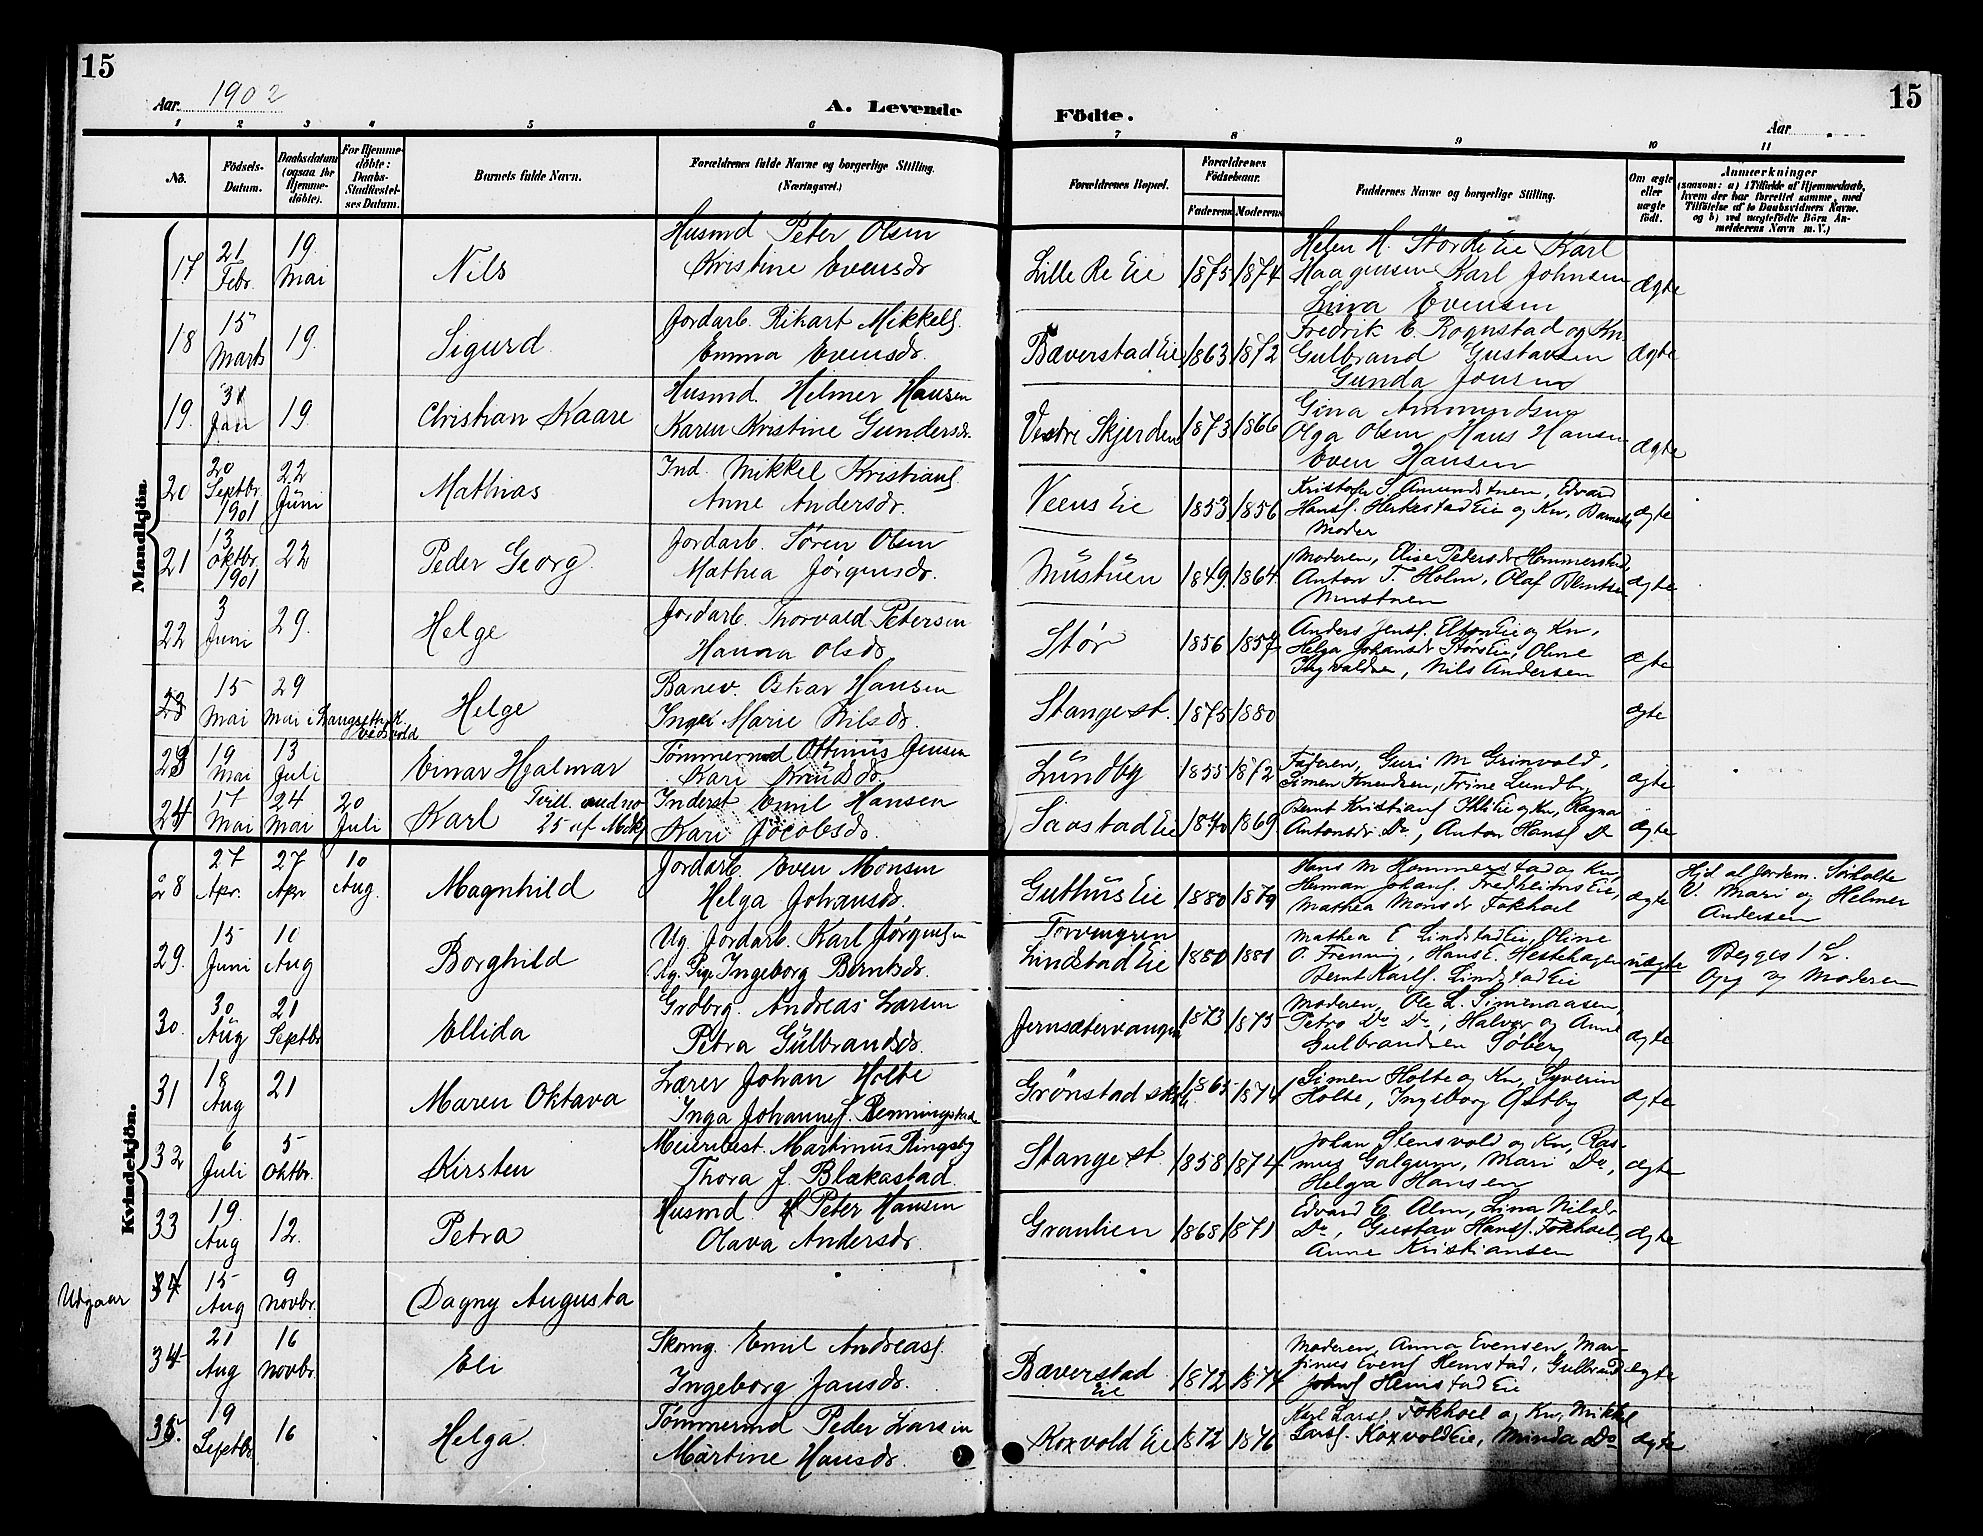 15
15
Aar 1902
A. Levende
Födte.
Aar
1 2 3 4 5 6 7 8 9 10 11
No.
Födsels-Datum.
Daabsdatum (ogsaa for Hjemme-döbte).
For Hjemme-döbte: Daabs-Stadfæstel-ses Datum.
Barnets fulde Navn.
Forældrenes fulde Navne og borgerlige Stilling. (Næringsvei.)
Forældrenes Bopæl.
Forældrenes Födselsaar.
Faderens Moderens
Faddernes Navne og borgerlige Stilling.
Om ægte eller uægte født.
Anmærkninger
(saasom: a) i Tilfælde af Hjemmedaab, hvem der har forrettet samme, med Tilføielse af to Daabsvidners Navne, og b) ved uægtefödte Börn Anmelderens Navn m.V.)
Mandkjön.
17 21 Febr. 19. Mai Nils
Husmd Peter Olsen
Kristine Evensdr
Lille Re Eie 1875 1874
Helen H. Stordi Eie Karl
Haagensen Karl Johnsen
Lina Evensen
Ægte
18 15 Marts 19. Sigurd
Jordarb. Rikart Mikkels.
Emma Evensdr.
Bæverstad Eie 1863 1872
Fredrik E. Rognstad og Kn
Gulbrand Gustavsen
Gunda Jensen
Ægte
19. 31 Jan 19. Christian Kaare
Husmd. Helmer Hansen
Karen Kristine Gundersdr.
Vestre Skjerden 1873 1866
Gina Ammundsen
Olga Olsen Hans Hansen
Even Hansen
Ægte
20 20 Septbr. 1901 22 Juni Mathias
Ind. Mikkel Kristians.
Anne Andersdr.
Veens Eie 1853 1856
Kristofer S. Amundstuen, Edvard
Hansf. Herkestad Eie og Kn, Barnets
Moder
ægte
21 13 Oktbr. 1901 22 Peder Georg.
Jordarb. Søren Olsen
Mathea Jørgensdr.
Mustuen 1849. 1864.
Moderen, Elise Petersdr Hommerstad,
Anton T. Holm, Olaf Berntsen
Mustuen
ægte
22 3 Juni 29. Helge
Jordarb. Thorvald Petersen
Hanna Olsdr
Stør 1856 1857
Anders Jensf. Elton Eie og Kn,
Helga Johansdr Størs Eie, Oline
Ingvaldsen, Nils Andersen
ægte
23 15 Mai 29 Mai i Langseth K. Helge
Banev. Oskar Hansen
Inga Marie Nilsdr.
Stange st. 1875 1880
ægte
23 19 Mai 13 Juli Einar Hjalmar
Tømmermd Ottinius Jensen
Kari Knudsdr.
Lundby 1855 1872
Faderen, Guri M Grinvold,
Simen Knudsen, Trine Lundby
ægte
24 17 Mai 24 Mai 20 Juli Karl Tvill. med no 25 af Mdkj.
Inderst Emil Hansen
Kari Jacobsdr.
Saastad Eie 1840 1869
Bernt Kristians. Eie og Kn, Ragna
Antonsdr Do, Anton Hansf Do
ægte
Kvindekjön.
28 27 Apr. 27 Apr 10 Aug. Magnhild
Jordarb. Even Monsen
Helga Johansdr.
Guthus Eie 1880 1879
Hans M Hommerstad og Kn,
Herman Johans. Fredheims Eie,
Mathea Monsdr Fokhoel
ægte
Hjd. af Jordem. Sørholte
V. Mari og Helmer
Andersen
29. 15 Juni 10 Aug Borghild
Ug. Jordarb. Karl Jørgensen
Ug. Pige Ingeborg Berntsdr.
Torvengren
Lindstad Eie 1880 1881
Mathea E Lindstad Eie, Oline
O. Frenning, Hans E. Hestehagen
Bernt Karlf. Lindstad Eie
uægte
Begges 1 L.
Opg. og Moderen
30. 30 Aug 21 Septbr Ellida
Grdbrg. Andreas Larsen
Petra Gulbrandsdr.
Jernsætervangen 1873 1875
Moderen, Ole L. Simenaasen,
Petro Do Do, Halvor og Anne
Gulbrandsen Søberg
ægte
31 18 Aug 21 Maren Oktava
Lærer Johan Holte
Inga Johannes. Benningstad
Grønstad skole 1865 1874
Simen Holte og Kn, Syverin
Holte, Ingeborg Østby
ægte
32 6 Juli 5 Oktbr. Kirsten
Meieribest. Martinus Ringsby
Thora J. Blækastad.
Stange st. 1858 1874
Johan Stensvold og Kn, Ras-
mus Galgum, Mari Do,
Helga Hansen
ægte
33 19. Aug 12. Petra
Husmd. Peter Hansen
Olava Andersdr.
Granlien 1868 1871
Edvard E. Alm, Lina Nilsdr
Do, Gustav Hansf. Fokhoel,
Anne Kristiansen
ægte
Udgaar 34 15 Aug 9 Novbr. Dagny Augusta
34 21 Aug 16 Novbr. Eli
Skomg. Emil Andreas.
Ingeborg Jansdr.
Bæverstad Eie 1872 1874
Moderen, Anna Evensen, Mar-
tinus Evens Hemstad, Gulbrand
Johns Hemstad Eie
ægte
35. 19 Septbr 16 Helga
Tømmermd Peder Larsen
Martine Hansdr.
Koxvold Eie 1872 1876
Karl Larsf. Fokhoel og Kn, Mikkel
Larsf. Koxvold Eie, Minda Do
ægte